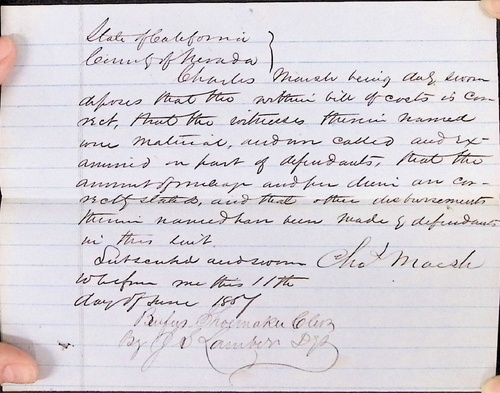 State of California }
County of Nevada }
Charles Marsh being duly sworn
deposes that the within bill of costs is cor-
rect, that the witnesses therein named
were material, and were called and ex-
amined on part of defendants, that the
amount of mileage and per diem are cor-
rectly stated, and that other disbursements
therein named have been made by defendants
in this suit.
Subscribed and sworn Chas Marsh
to before me this 11th
day of June 1857
Rufus Shoemaker Clerk
By J Lambert Dpt